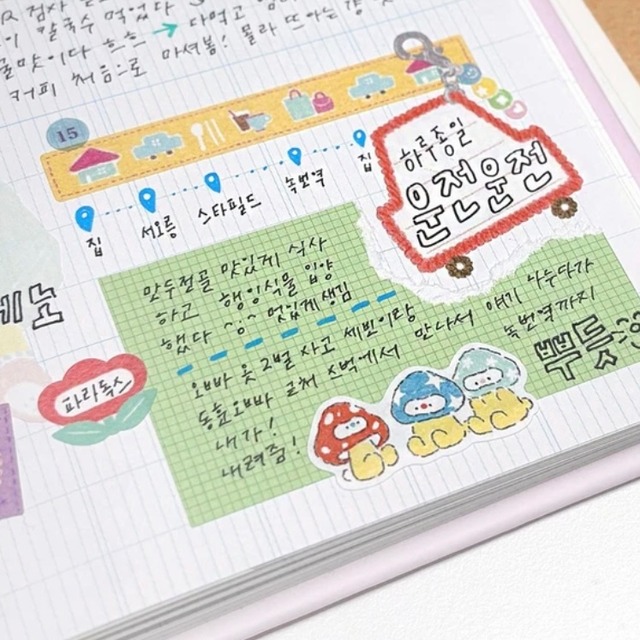 검사
칼국수 먹었다
맛이다 흐흐 → 다먹고
커피 처음으로 마셔봄! 몰라 뜨아는
15
집 서오릉 스타필드 녹번역 집
하루종일
운전운전
만두전골 맛있게 식사
하고 행잉식물 입양
했다 ^ㅇ^ 멋있게 생김
오빠 옷 2벌 사고 세빈이랑
동효오빠 근처 스벅에서 만나서 얘기 나누다가
내가! 녹번역까지
내려줌! 뿌듯
파라독스